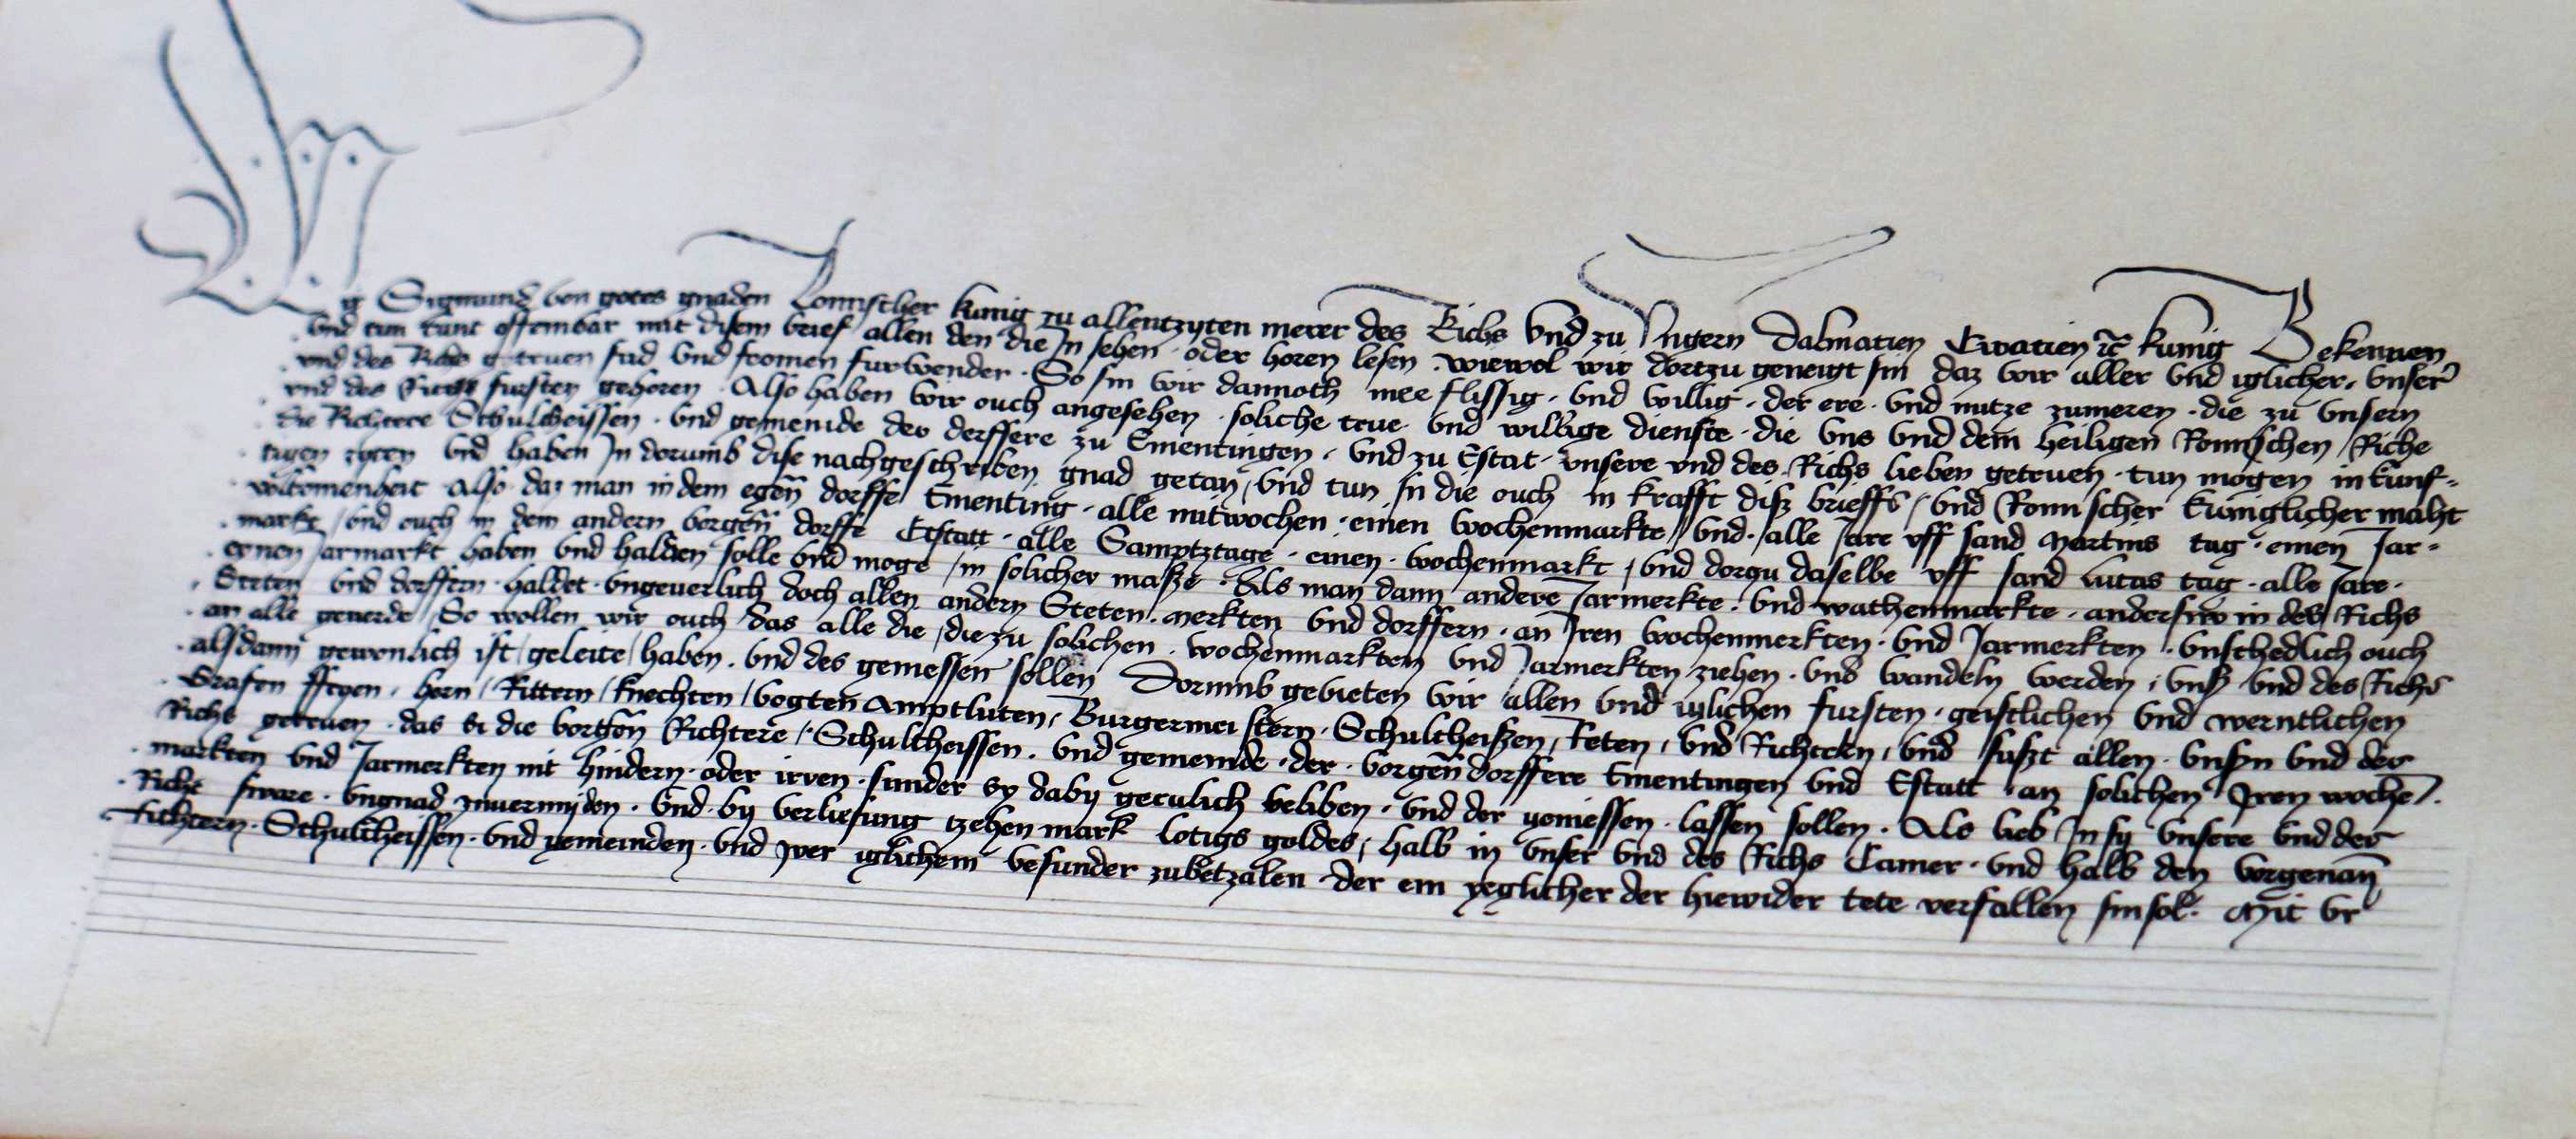 Wir Sigmund von gotes gnaden Romischer kunig zu allentzyten merer des Richs vnd zu Vngern Dalmatien Croatien ꝛc kunig Bekennen
vnd tun kunt offembar mit disem brief allen den die Jn sehen · oder horen lesen · wiewol wir dortzu geneigt sin daz wir aller vnd iglicher · vnser
vnd des Richs getruen frid vnd fromen furwenden · So sin wir dannoch mee flissig · vnd willig · der ere · vnd nutze zumeren · die zu vnsern
vnd des Richs fursten gehoren · Also haben wir ouch angesehen · soliche true vnd willige dienste · die vns vnd dem heiligen Romischen Riche
die Richtere Schultheissen · vnd gemeinde der derffere zu Ementingen · vnd zu Estat · vnsere vnd des Richs lieben getruen · tun mogen in kunf-
tigen zyten vnd haben Jn dorumb dise nachgeschriben gnad getan, vnd tun Jn die ouch in krafft disz brieffs / vnd Romischer kuniglicher maht
volkomenheit Also daz man in dem egen̄ dorffe Ementing · alle mitwochen · einen wochenmarkte / vnd · alle Jare vff sand Martins tag · einen Jar-
markt / vnd ouch in dem andern vorgen̄ dorffe Estatt · alle Samptztage · einen · wochenmarkt / vnd dorzu daselbe vff sand Lucas tag · alle Jare ·
einen Jarmarkt haben vnd halden solle vnd moge / in solicher masze · Als man dann andere Jarmerkte · vnd wochenmarkte · anderswo in des Richs
Steten vnd dorffern · haldet · vngeuerlich doch allen andern Steten · Merkten vnd dorffern · an Jren wochenmerkten · vnd Jarmerkten · vnschedlich ouch
an alle geuerde / So wollen wir ouch das alle die / die zu solichen · wochenmarkten vnd Jarmerkten ziehen · vnd wandeln werden / vnsz vnd des Richs
alsdann gewonlich ist / geleite / haben · vnd des geniessen sollen Dorumb gebieten wir allen vnd iglichen fursten · geistlichen vnd werntlichen
Grafen ffryen · hern / Rittern / knechten / vogten Amptluten / Burgermeistern · Schultheiszen / Reten / vnd Richtern / vnd suszt allen · vnsn vnd des
Richs getruen · das si die vorgen̄ Richtere / Schultheissen · vnd gemeinde · der · vorgen̄ dorffere Ementingen vnd Estatt · an solichen Jren wochē-
markten vnd Jarmerkten nit hindern · oder irren · sunder sy daby gerulich beliben · vnd der geniessen · lassen sollen · Als lieb Jn sy vnsere vnd des
Richs swere · vngnad zuuermyden · vnd · by verliesung tzehen mark lotigs goldes / halb in vnser vnd des Richs Camer · vnd halb den vorgenan̄
Richtern · Schultheissen · vnd gemeinden · vnd Jrer iglichem besunder zubetzalen der ein yeglicher der hiewider tete verfallen sin sol · Mit vr